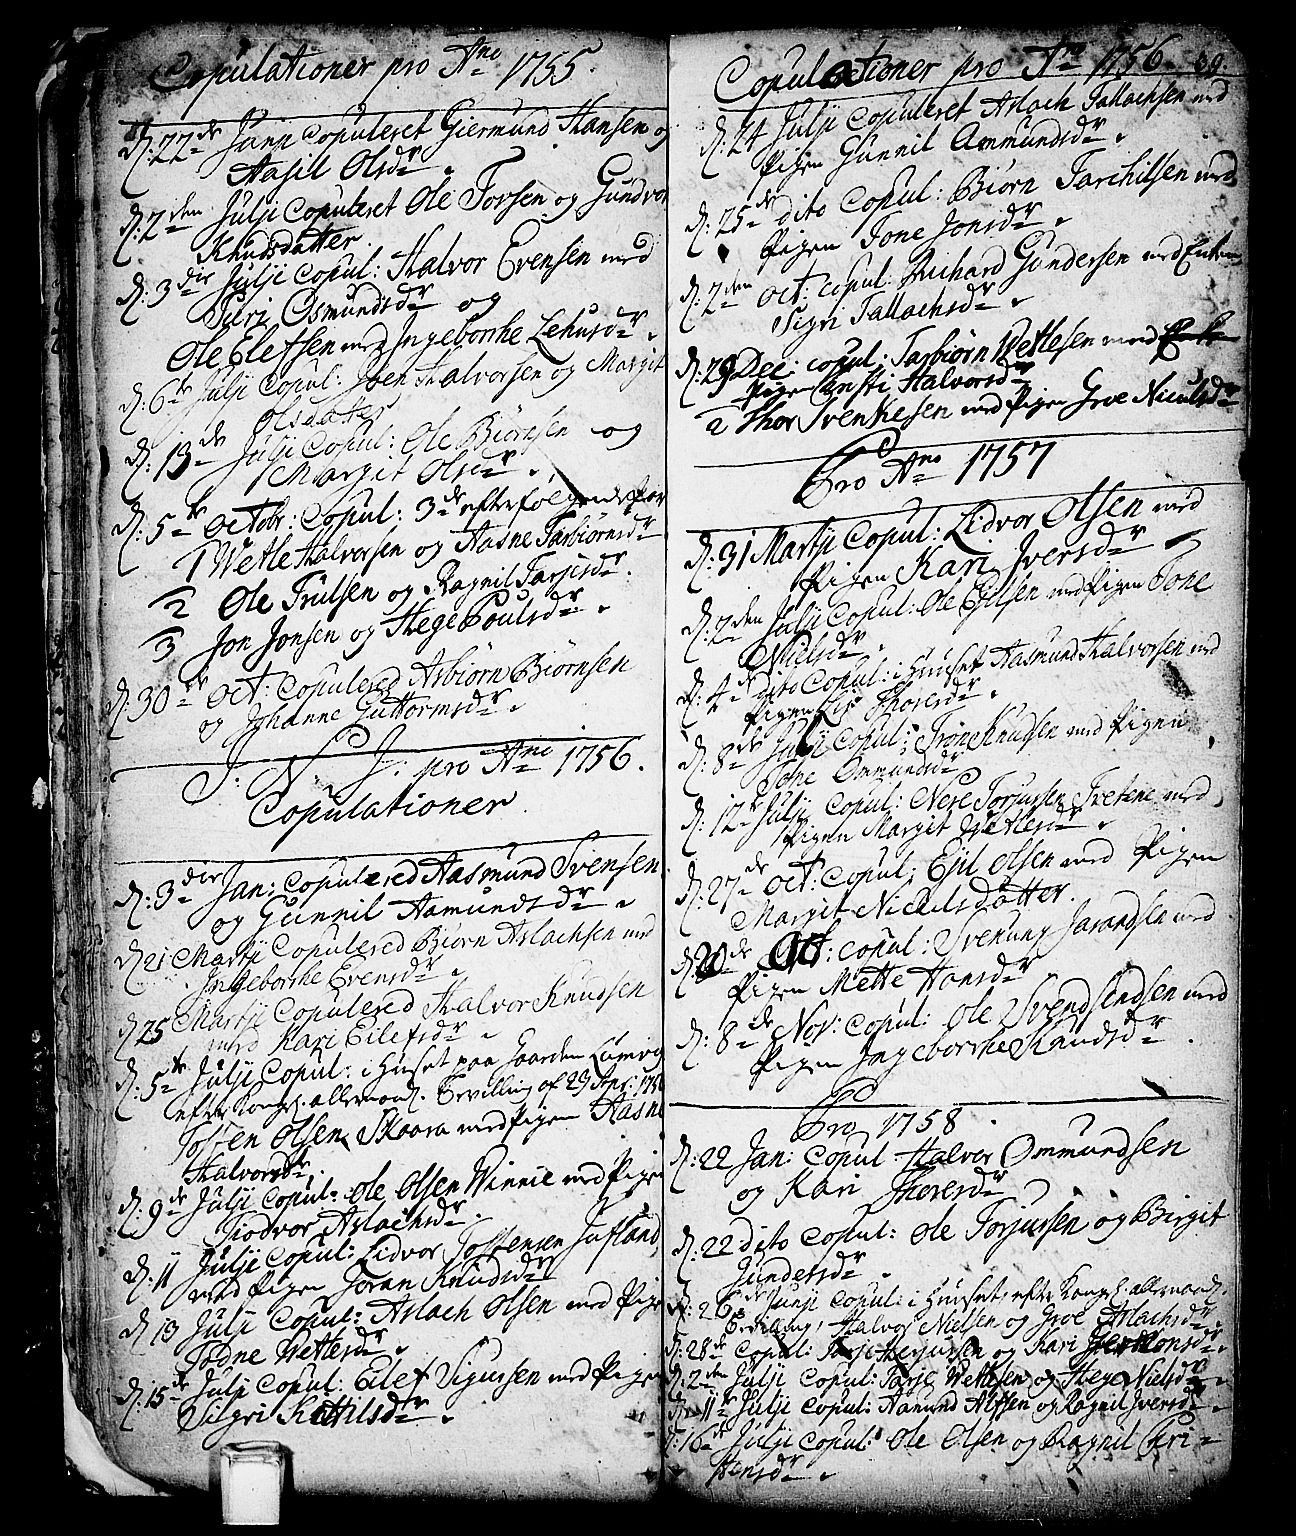 Copulationer pro Ano 1755.
d: 22de Junji Copuleret Giermund Hansen og
Aasil Olsdr.
d: 2den Julji Copuleret Ole Torsen og Gundvor
Knudsdatter.
d: 3die Julji Copul: Halvor Evensen med
Siri Osmundsdr og
Ole Elefsen med Ingeborke Lehusdr.
d: 6te Julji Copul: Joen Halvorsen og Margit
Olsdatter
d: 13de Julji Copul: Ole Biörnsen og
Margit Olsdr.
d: 5te Octobr: Copul: 3de efterfölgende Par
1 Wetle Halvorsen og Aasne Tarbiörnsdr
2 Ole Trulsen og Ragnil Tarjesdr.
3 Jon Jonsen og Hege Poulsdr.
d: 30te Oct: Copulered Asbiörn Biörnsen
og Johanne Guttormsdr.
J: N: J: pro Ano 1756.
Copulationer
d: 3die Jan: Copulered Aasmund Svensen
og Gunnil Aamundsdr.
d 21 Martji Copulered Biörn Aslachsen med
Ingeborke Evensdr.
d 25 Martji Copulered Halvor Knudsen
med Kari Eilefsdr.
d: 5te Julji Copul: i Huuset paa Gaarden
efter Kongl: allernaad. Bevilling af 29 Apr: 175
Tosten Olsen Skaara med Pigen Aasne
Halvorsdr.
d: 9de Julji Copul: Ole Olsen Winnie med Pigen
Tiodvor Aslachsdr.
d: 11 Julji Copul: Lidvor Tostensen Jufland
med Pigen Joran Knudsdr
d 13 Julji Copul: Aslach Olsen med Pigen
Todne Wetlesdr.
d: 15de Julji Copul: Eilef Sigursen med Pigen
Sigri Kettilsdr.
Copulationer pro Ano 1756. 69.
d: 24 Julji Copuleret Aslach Tallachsen med
Pigen Gunnil Ammundsdr.
d: 25de dito Copul: Biörn Tarchilsen med
Pigen Tone Jonsdr.
d: 2den Oct: Copul: Richard Gundersen med Enken
Sigri Tallachsdr.
d: 29 Dec: copul: Tarbiörn Wetlesen med
Pigen Kirsti Halvorsdr
2 Thor Svenkesen med Pigen Groe Niculsdr
Pro Ano 1757
d: 31 Martji Copul: Lidvor Olsen med
Pigen Kari Iversdr
d: 2den Julji Copul: Ole Ejelsen med Pigen Tone
Nielsdr.
d: 4de dito Copul: i Huuset Aasmund Halvorsen med
Pigen Liv Thoresdr.
d: 8de Julji Copul: Trone Knudsen med Pigen
Tone Ommundsdr
d: 12te Julji Copul: Nere Torjussen Tretene med
Pigen Margit Wetlesdr.
d: 27de Oct: Copul; Ejel Olsen med Pigen
Margit Nickels Datter.
d 20de Oct: copul: Svenung Jarandsen med
Pigen Mette Hansdr
d: 8de Nov: copul: Ole Svendsendsen med
Pigen Ingeborke Knudsdr.
Pro 1758.
d: 22 Jan: Copul Halvor Ommundsen
og Kari Thoresdr
d: 22 dito Copul: Ole Torjussen og Birgit
Gundersdr.
d: 26de Junji Copul: i Huuset efter Kongl: allernaad.
Bevilling, Halvor Nielsen og Groe Aslachsdr.
d: 28de Copul: Tarje Herjussen og Kari
d: 2den Julji Copul: Tarje Wetlesen og Hege Nielsdr.
d: 11te Julji Copul: Aamund Alfsen og Ragnil Iversdr.
d: 16de Julji Copul: Ole Olsen og Ragnil Cri-
stensdr.